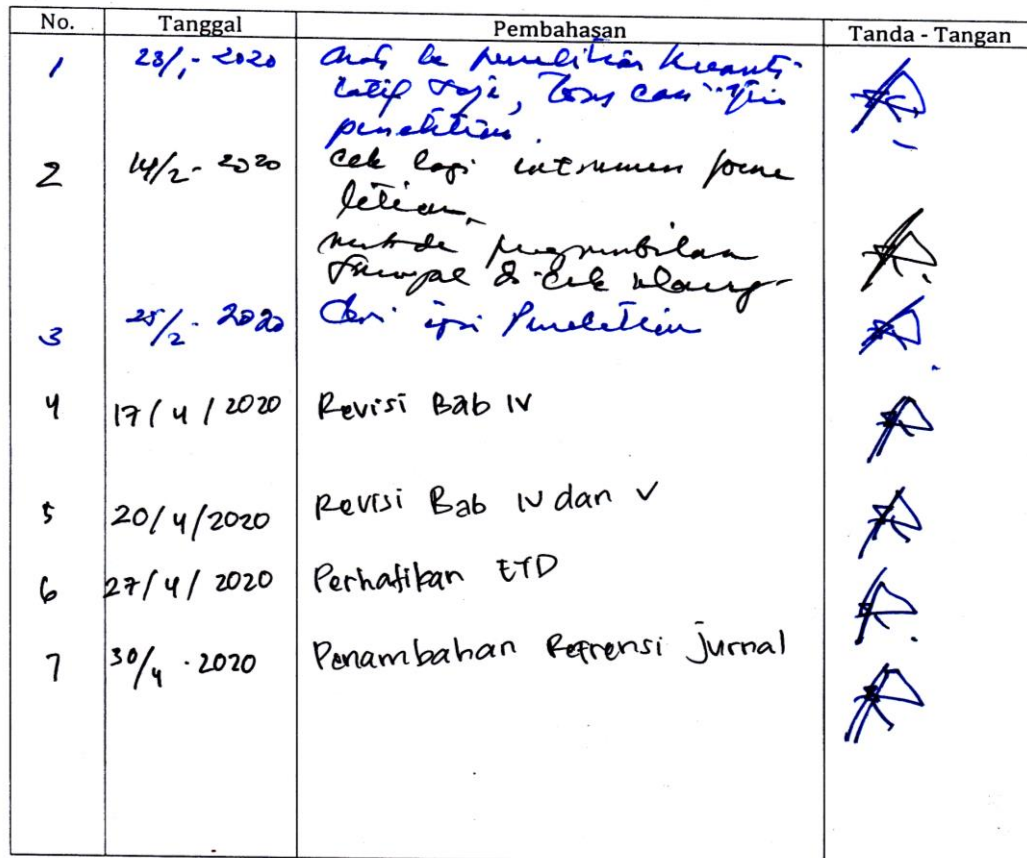 No. Tanggal Pembahasan Tanda - Tangan
1 28/1-2020 penelitian kuanti-
tatif saja, cari
penelitian.
2 14/2-2020 cek lagi intrumen pene
litian
metode pengambilan
di cek ulang
3 25/2-2020 Cari Penelitian
4 17/4/2020 Revisi Bab IV
5 20/4/2020 Revisi Bab IV dan V
6 27/4/2020 Perhatikan ETD
7 30/4.2020 Penambahan Refrensi jurnal